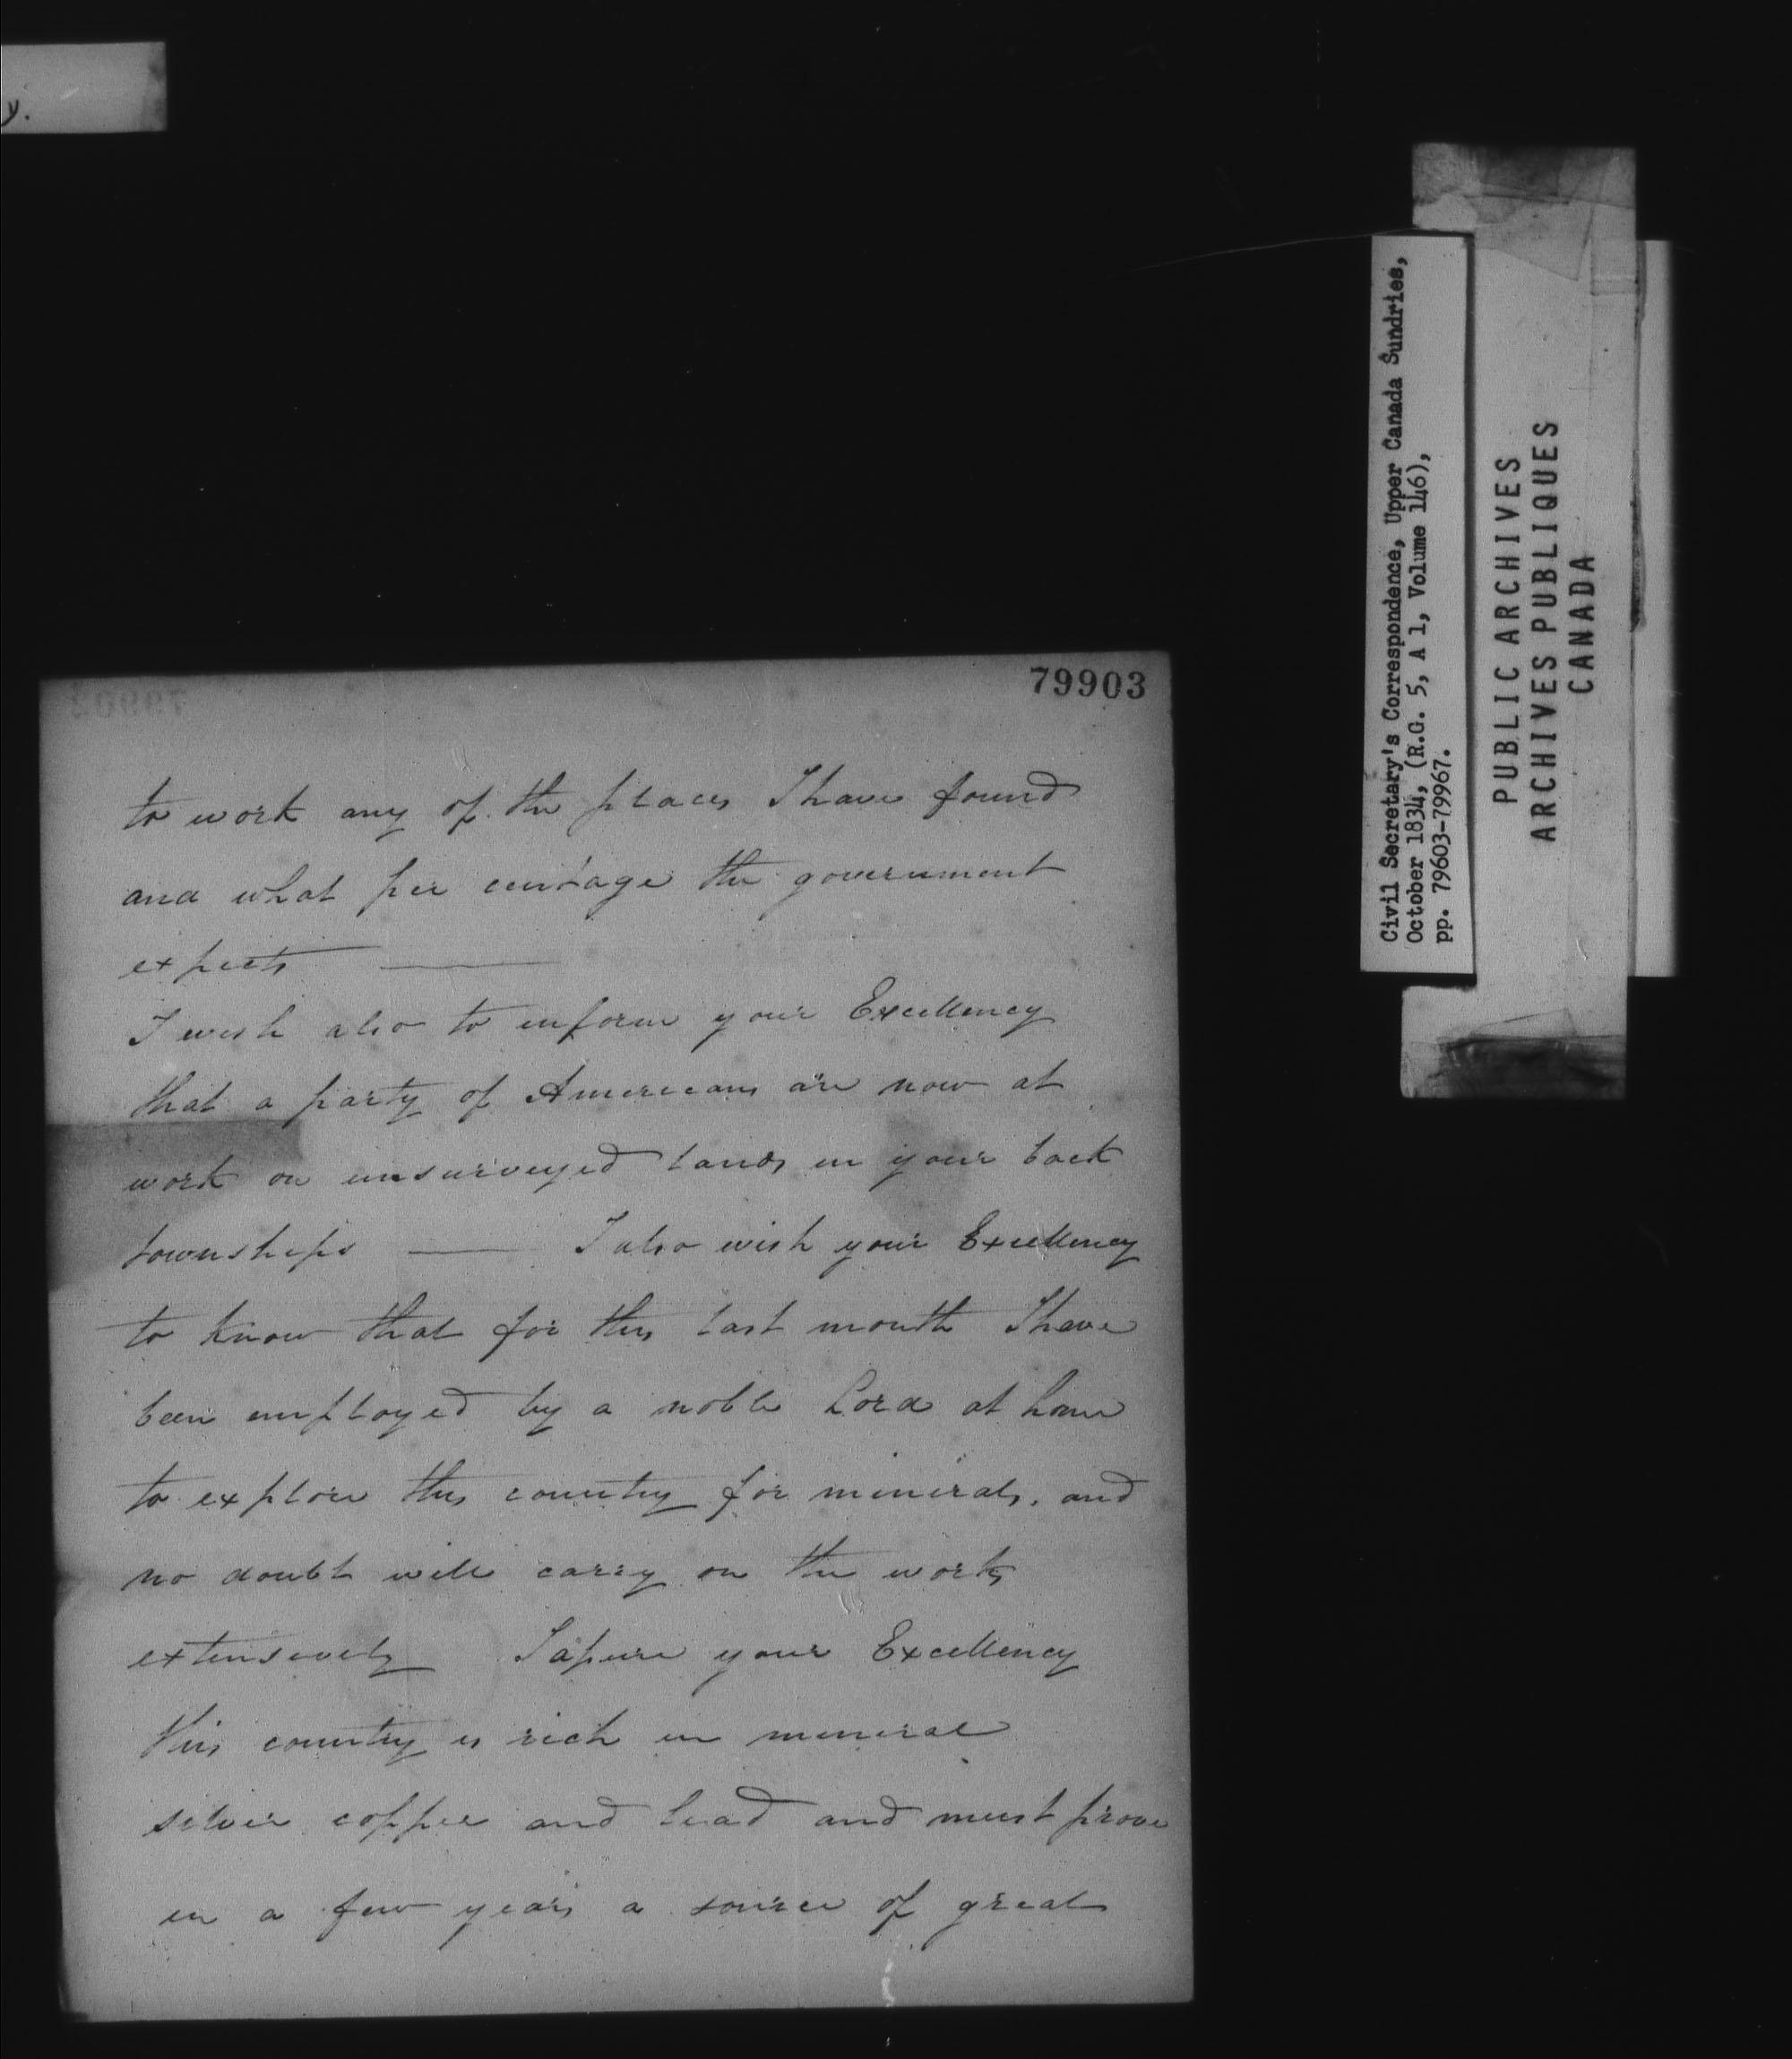 y.
79903
to work any of the places I have found
and what per centage the government
expects ———
I wish also to inform your Excellency
that a party of Americans are now at
work on unsurveyed lands in your back
townships ——— I also wish your Excellency
to know that for this last month I have
been employed by a noble Lord at home
to explore this country for minerals, and
no doubt will carry on the works
extensively I asure your Excellency
this country is rich in mineral
silver copper and lead and must prove
in a few years a source of great
Civil Secretary's Correspondence, Upper Canada Sundries,
October 1834, (R.G. 5, A 1, Volume 146),
pp. 79603-79967.
PUBLIC ARCHIVES
ARCHIVES PUBLIQUES
CANADA